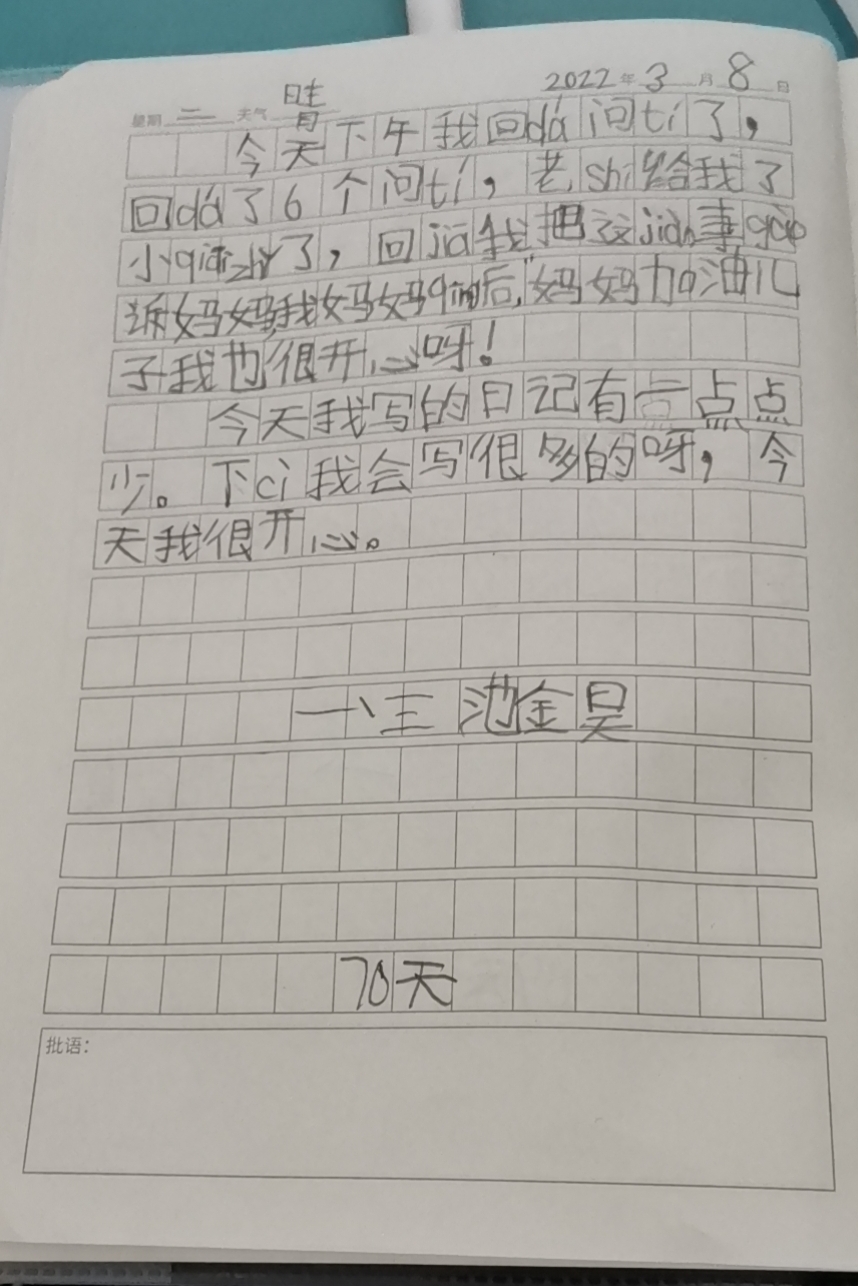 2022年3月8日
星期二 天气晴
今天下午我回dá问tí了，
回dá了6个问tí，老shī给我了
小 了，回jiā我把这jiàn事gào
诉妈妈，我妈妈 后，"妈妈加油儿
子我也很开心呀！
今天我写的日记有一点点
少。下cì我会写很多的呀，今
天我很开心。
一、三 池金昊
70天
批语：